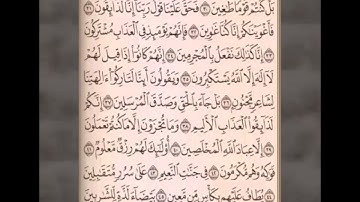 بَلْ كُنتُمْ قَوْمًا طَٰغِينَ ٣٠ فَحَقَّ عَلَيْنَا قَوْلُ رَبِّنَآ إِنَّا لَذَآئِقُونَ ٣١
فَأَغْوَيْنَٰكُمْ إِنَّا كُنَّا غَٰوِينَ ٣٢ فَإِنَّهُمْ يَوْمَئِذٍ فِي ٱلْعَذَابِ مُشْتَرِكُونَ
٣٣ إِنَّا كَذَٰلِكَ نَفْعَلُ بِٱلْمُجْرِمِينَ ٣٤ إِنَّهُمْ كَانُوٓا۟ إِذَا قِيلَ لَهُمْ
لَآ إِلَٰهَ إِلَّا ٱللَّهُ يَسْتَكْبِرُونَ ٣٥ وَيَقُولُونَ أَئِنَّا لَتَارِكُوٓا۟ ءَالِهَتِنَا
لِشَاعِرٍ مَّجْنُونٍ ٣٦ بَلْ جَآءَ بِٱلْحَقِّ وَصَدَّقَ ٱلْمُرْسَلِينَ ٣٧ إِنَّكُمْ
لَذَآئِقُوا۟ ٱلْعَذَابِ ٱلْأَلِيمِ ٣٨ وَمَا تُجْزَوْنَ إِلَّا مَا كُنتُمْ تَعْمَلُونَ
٣٩ إِلَّا عِبَادَ ٱللَّهِ ٱلْمُخْلَصِينَ ٤٠ أُو۟لَٰٓئِكَ لَهُمْ رِزْقٌ مَّعْلُومٌ ٤١
فَوَٰكِهُ وَهُم مُّكْرَمُونَ ٤٢ فِي جَنَّٰتِ ٱلنَّعِيمِ ٤٣ عَلَىٰ سُرُرٍ مُّتَقَٰبِلِينَ
٤٤ يُطَافُ عَلَيْهِم بِكَأْسٍ مِّن مَّعِينٍ ٤٥ بَيْضَآءَ لَذَّةٍ لِّلشَّٰرِبِينَ